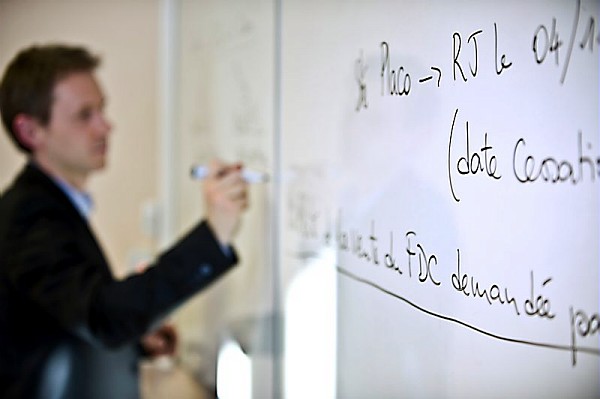 Placo → RJ le 04/1
(date Cessati
la vente du FDC demandée pa